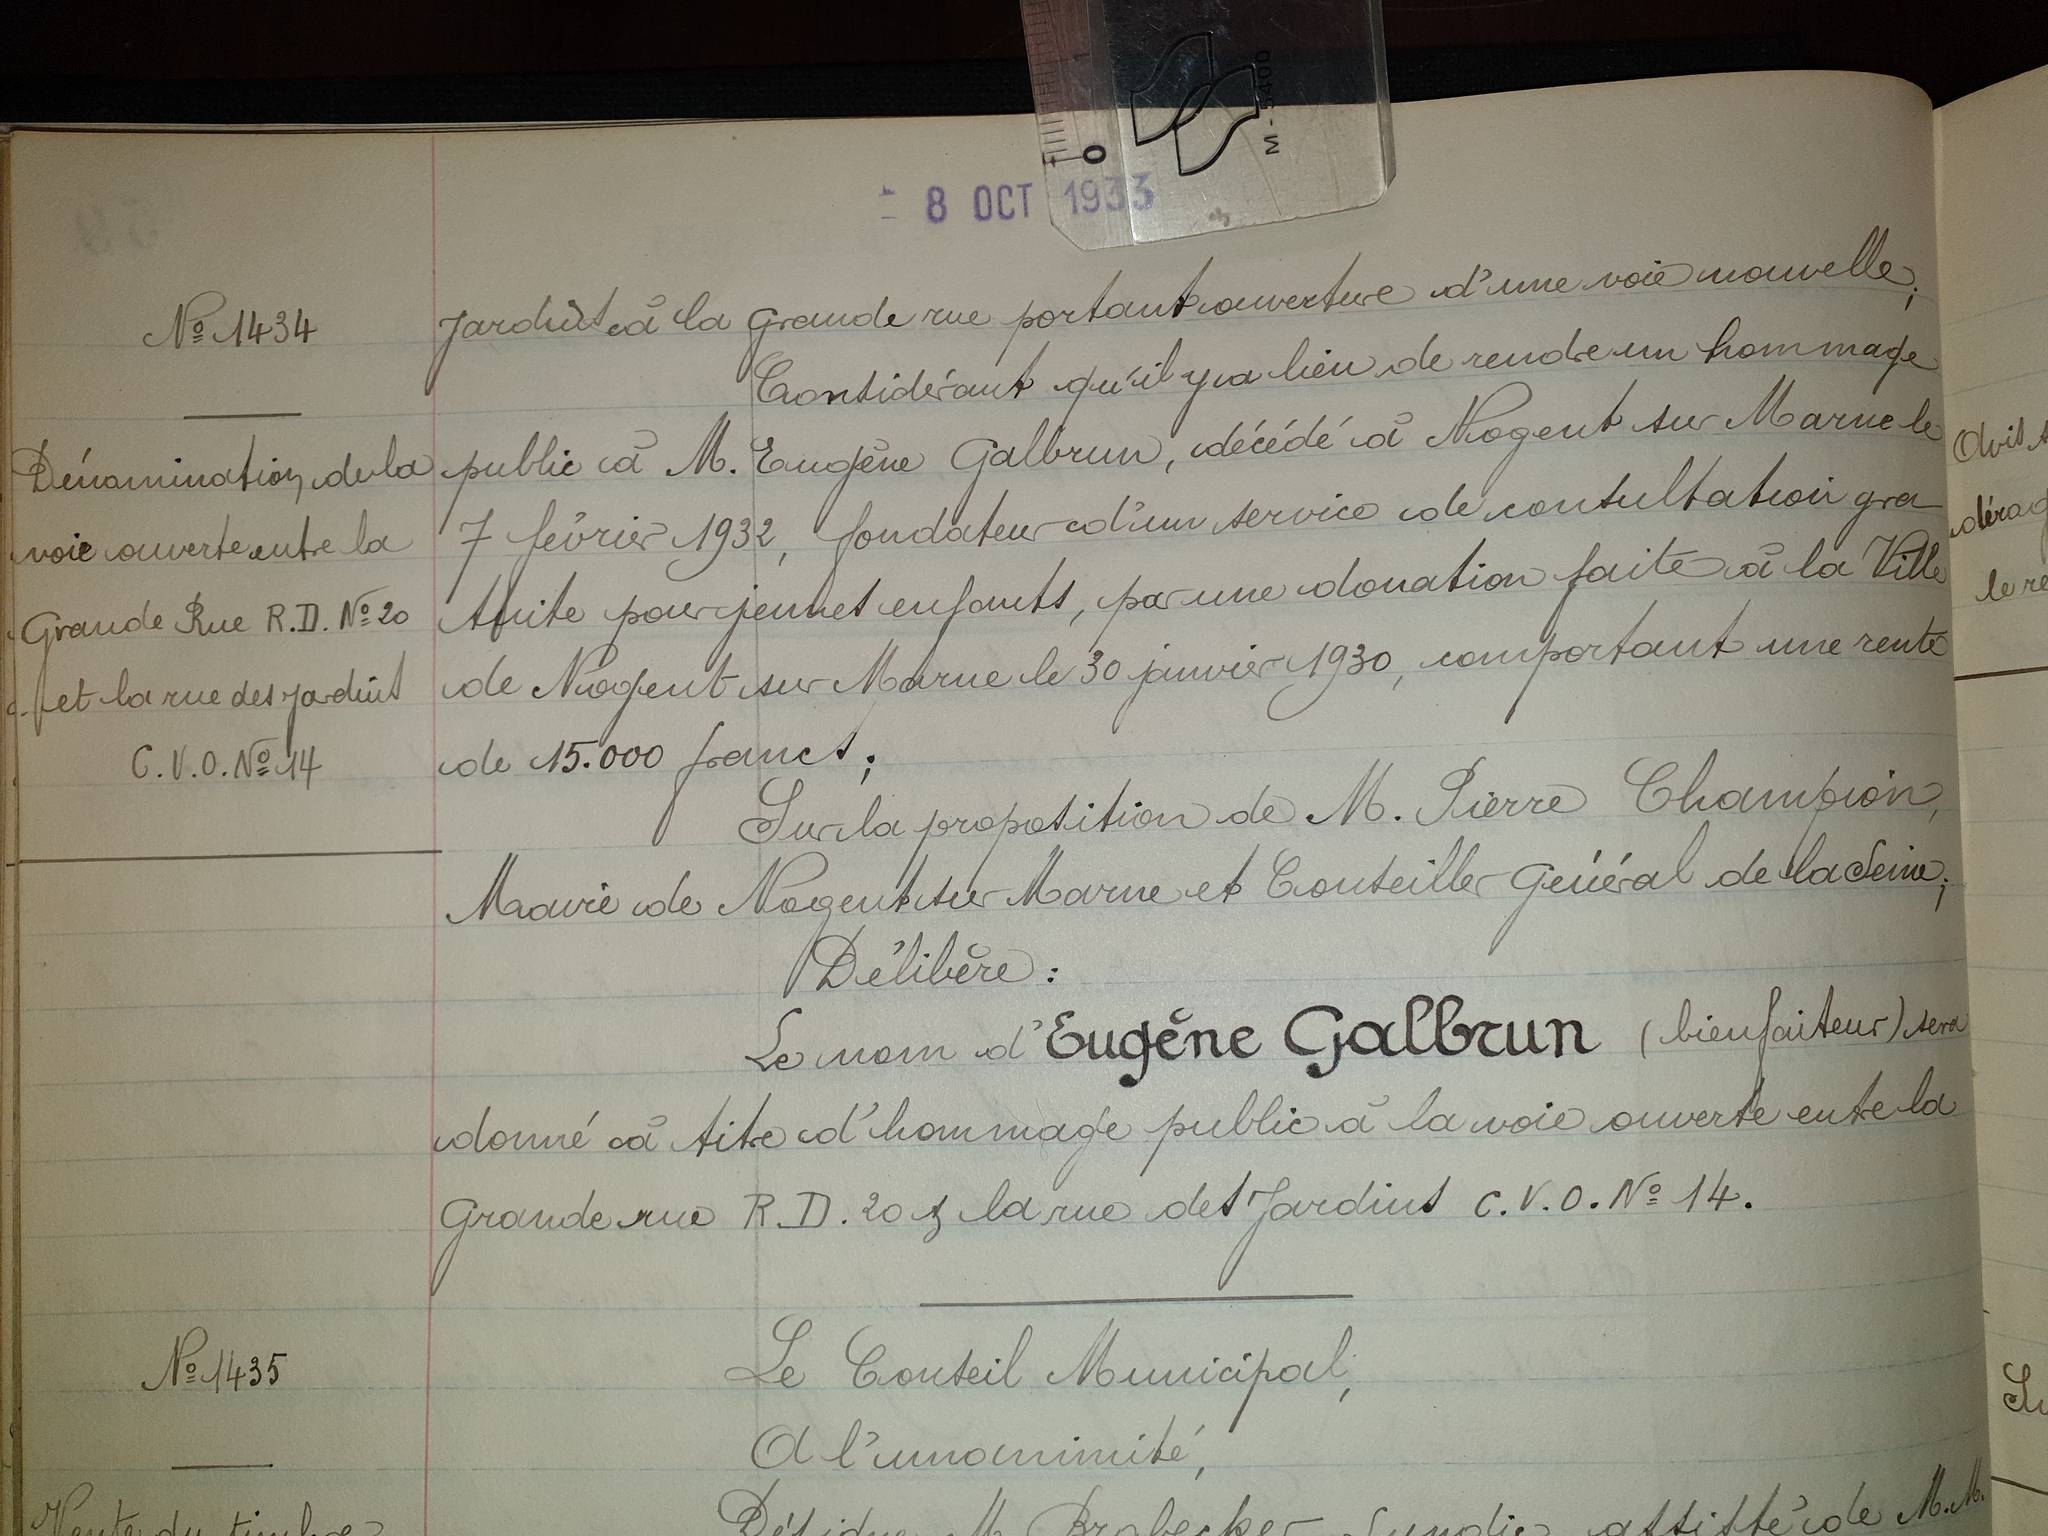 - 8 OCT 1933
0
1
M - 5400
Nº 1434
Dénomination de la
voie ouverte entre la
Grande Rue R.D. Nº 20
et la rue des Jardins
C.V.O. Nº 14
Jardins à la Grande rue portant ouverture d'une voie nouvelle;
Considérant qu'il y a lieu de rendre un hommage
public à M. Eugène Galbrun, décédé à Nogent sur Marne le
7 février 1932, fondateur d'un service de consultation gra
tuite pour jeunes enfants, par une donation faite à la Ville
de Nogent sur Marne le 30 janvier 1930, comportant une rente
de 15.000 francs;
Sur la proposition de M. Pierre Champion,
Maire de Nogent sur Marne et Conseiller Général de la Seine;
Délibère :
Le nom d'Eugène Galbrun (bienfaiteur) sera
donné à titre d'hommage public à la voie ouverte entre la
Grande rue R.D. 20 & la rue des Jardins C.V.O. Nº 14.
Nº 1435
Vente du timbre
Le Conseil Municipal,
A l'unanimité,
Désigne M. Brobecker Syndic assisté de M.M.
Avis
le re